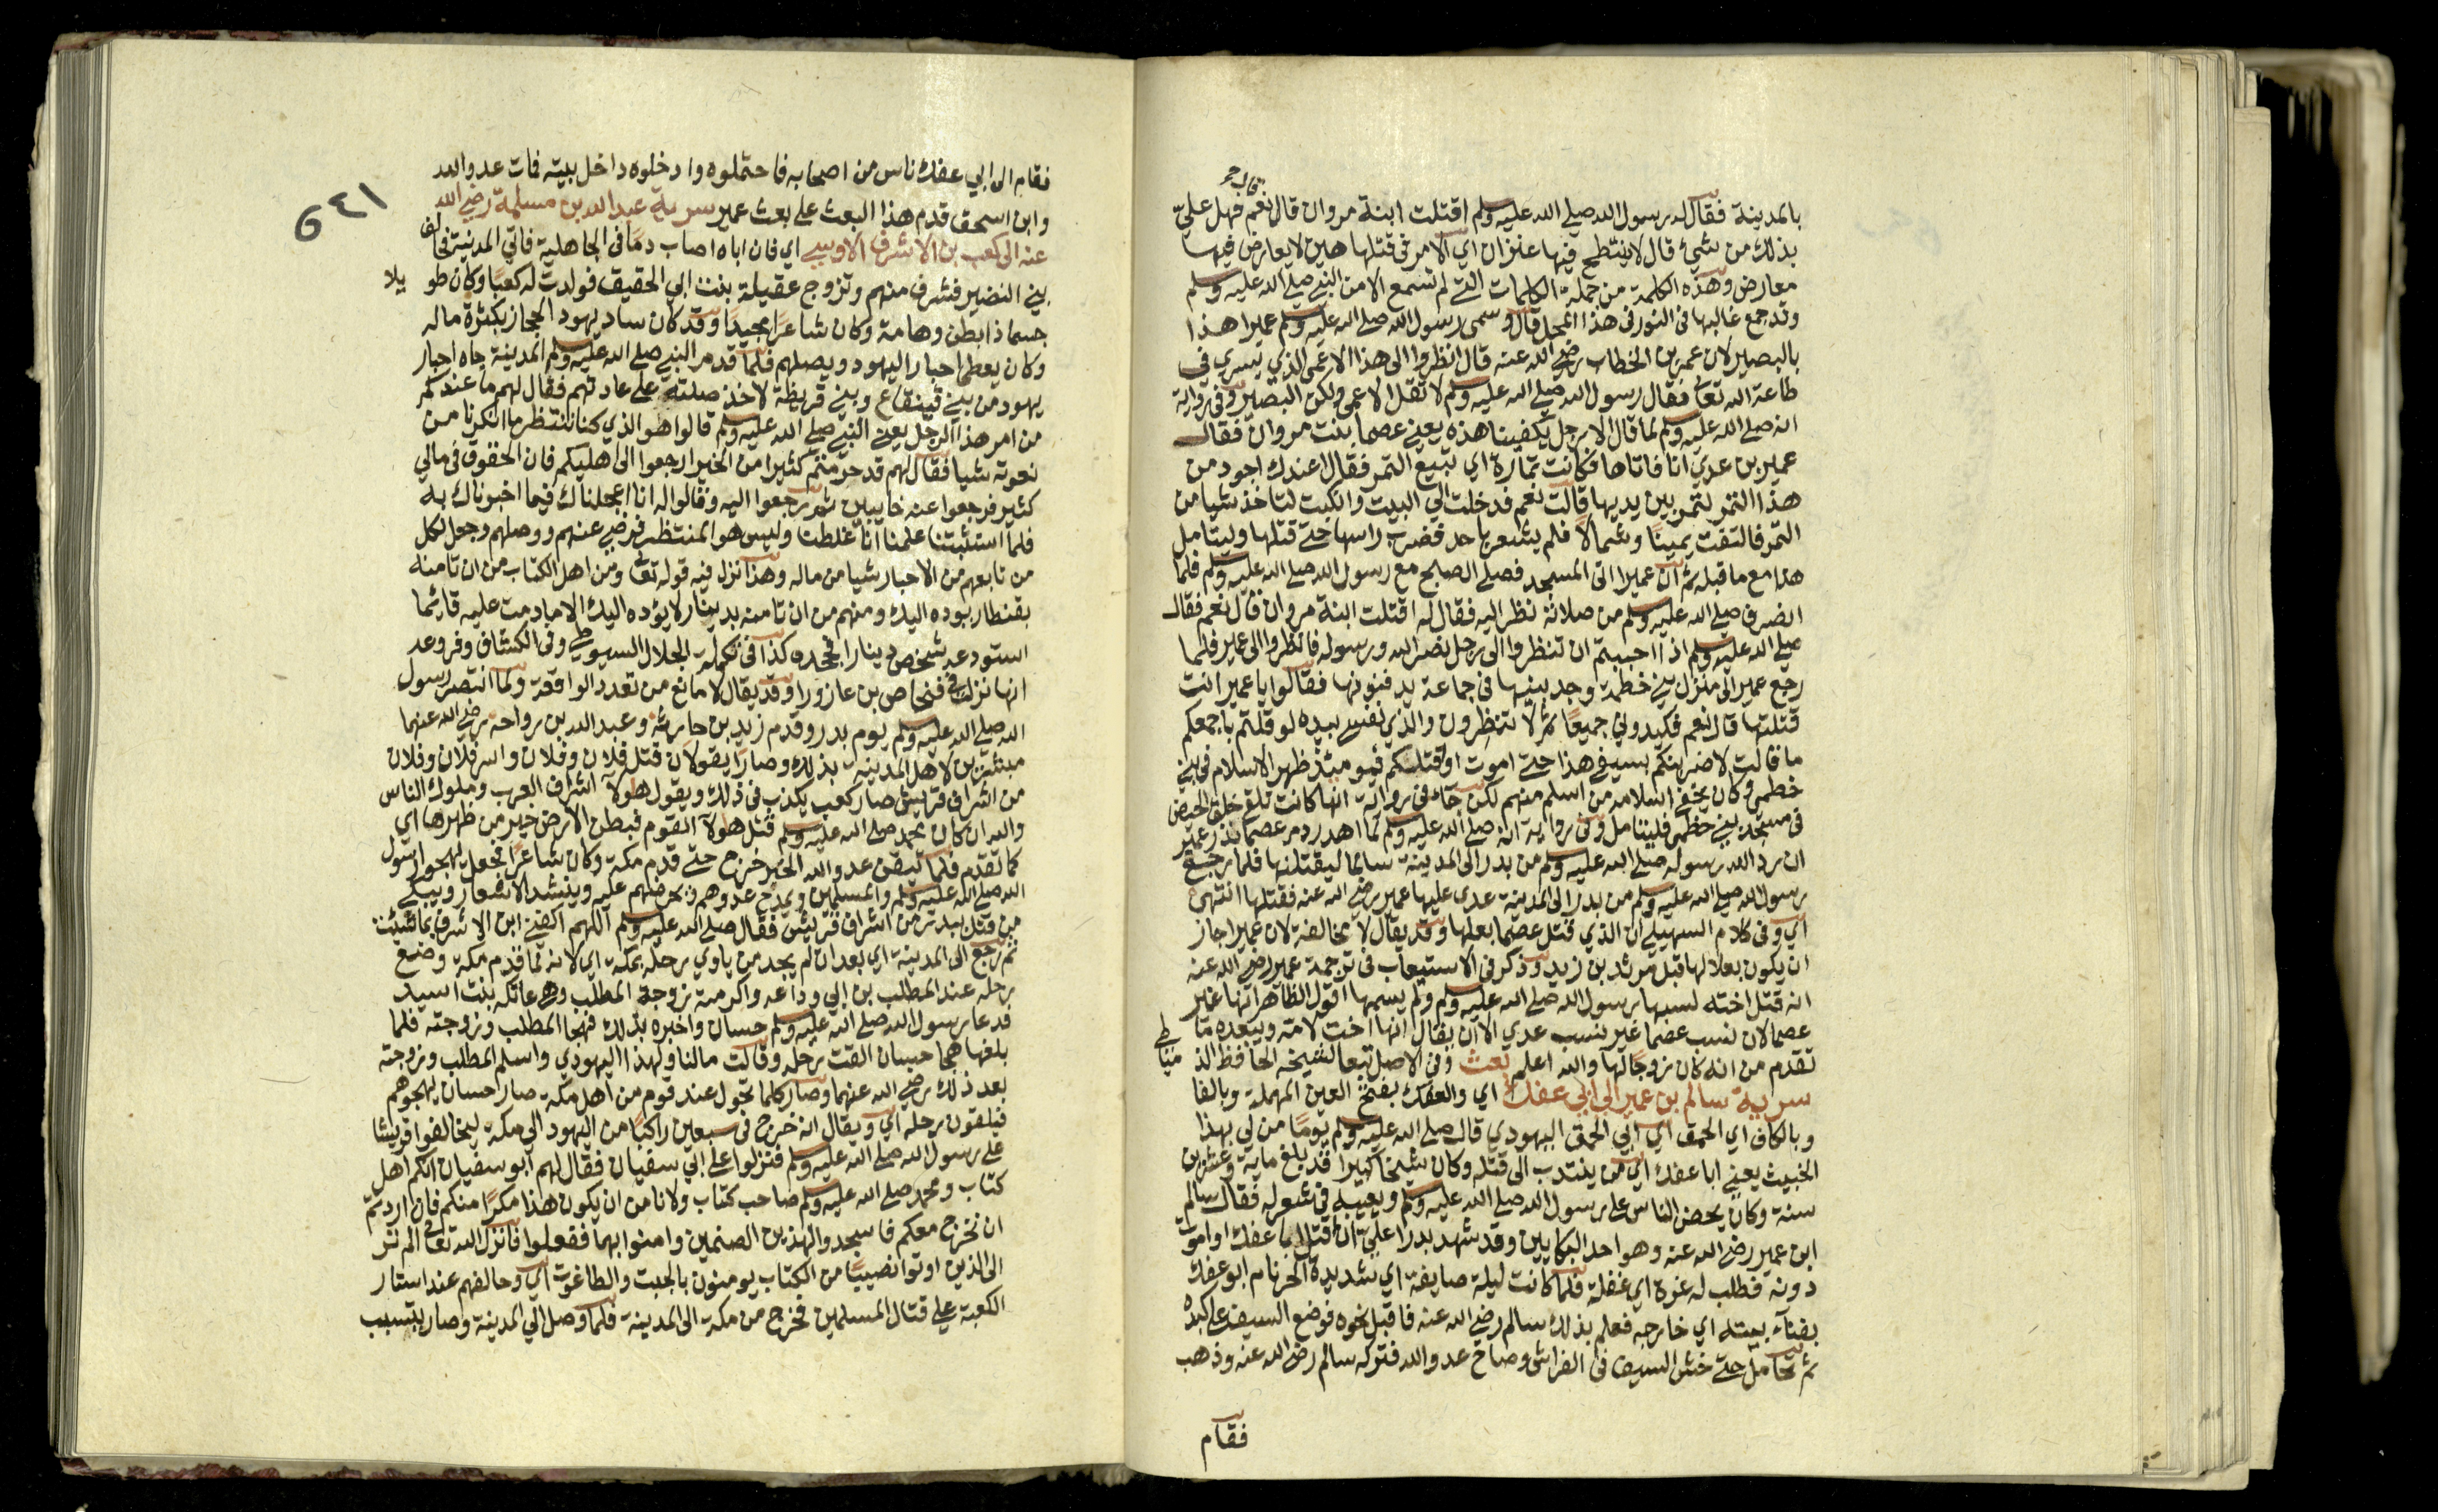 قال جـ
بالمدينة فقال له رسول الله صلى الله عليه وسلم اقتلت ابنة مروان قال نعم فهل عليّ
بذلك من شيئ قال لا ينتطح فيها عنزان اي الامر في قتلها هين لا يعارض فيها
معارض وهذه الكلمة من جملة الكلمات التي لم تسمع الا من النبي صلى الله عليه وسلم
وقد جمع غالبها في النور في هذا المحل قال وسمى رسول الله صلى الله عليه وسلم عميرا هذا
بالبصير لان عمر بن الخطاب رضي الله عنه قال انظروا الى هذا الاعمى الذي يسري في
طاعة الله تعا فقال رسول الله صلى الله عليه وسلم لا تقل الاعمى ولكن البصير وفي رواية
انه صلى الله عليه وسلم لما قال الا رجل يكفينا هذه يعني عصما بنت مروان فقال
عمير بن عدي انا فاتاها فكانت تمارة اي تبيع التمر فقال اعندك اجود من
هذا التمر لتمر بين يديها قالت نعم فدخلت الي البيت وانكبت لتاخذ شيا من
التمر فالتفت يمينًا وشمالاً فلم يشعر باحد فضرب راسها حتى قتلها وليتامل
هذا مع ما قبله ثم ان عميرا اتى المسجد فصلى الصبح مع رسول الله صلى الله عليه وسلم فلما
انصرف صلى الله عليه وسلم من صلاته نظر اليه فقال له اقتلت ابنة مروان قال نعم فقال
صلى الله عليه وسلم اذا احببتم ان تنظروا الى رجل نصر الله ورسوله فانظروا الى عمير فلما
رجع عمير الى منزل بني خطمة وجد بنيها في جماعة يدفنونها فقالوا يا عمير انت
قتلتها قال نعم فكيدوني جميعًا ثم لا تنظرون والذي نفسي بيده لو قلتم باجمعكم
ما قالت لاضربنكم بسيفي هذا حتى اموت او اقتلكم فيومئذ ظهر الاسلام في بني
خطمه وكان يخفي اسلامه من اسلم منهم لكن جاء في رواية انها كانت تلقي خلق الحيض
في مسجد بني خطمه فليتامل وفي رواية انه صلى الله عليه وسلم لما اهدر دم عصما نذر عمير
ان رد الله رسوله صلى الله عليه وسلم من بدر الى المدينة سالما ليقتلنها فلما رجع
رسول الله صلى الله عليه وسلم من بدر الى المدينة عدى عليها عمير رضي الله عنه فقتلها انتهى
اي وفي كلام السهيلي ان الذي قتل عصما بعلها وقد يقال لا مخالفة لان عميرا جاز
ان يكون بعلا لها قبل مرثد بن زيد وذكر في الاستيعاب في ترجمة عمير رضي الله عنه
انه قتل اخته لسبها رسول الله صلى الله عليه وسلم ولم يسمها اقول الظاهر انها غير
عصما لان نسب عصما غير نسب عدي الا ان يقال انها اخت لامه ويبعده ما
تقدم من انه كان زوجًا لها والله اعلم بعث وفي الاصل تبعا لشيخه الحافظ الد مياطي
سرية سالم بن عمير الى ابي عفك اي والعفك بفتح العين المهملة وبالفا
وبالكاف اي الحمق اي ابي الحمق اليهودي قال صلى الله عليه وسلم يومًا من لي بهذا
الخبيث يعني ابا عفك اي من ينتدب الى قتله وكان شيخا كبيرا قد بلغ ماية وعشرين
سنة وكان يحض الناس على رسول الله صلى الله عليه وسلم ويعيبه في شعر له فقال سالم
ابن عمير رضي الله عنه وهو احد البكايين وقد شهد بدرا عليّ ان اقتل ابا عفك او اموت
دونه فطلب له غرة اي غفلة فلما كانت ليلة صايفة اي شديدة الحر نام ابو عفك
بفناء بيته اي خارجه فعلم بذلك سالم رضي الله عنه فاقبل نحوه فوضع السيف على كبده
ثم تحامل حتى خش السيف في الفراش وصاح عدو الله فتركه سالم رضي الله عنه وذهب
فقام
٦٤١
فقام الى ابي عفك ناس من اصحابه فاحتملوه وادخلوه داخل بيته فات عدو الله
وابن اسحق قدم هذا البعث على بعث عمير سرية عبد الله بن مسلمة رضي الله
عنه الى كعب بن الاشرف الاوسي اي فان اباه اصاب دمًا في الجاهلية فاتي المدينة فحالف
بني النضير فشرف منهم وتزوج عقيلة بنت ابي الحقيق فولدت له كعبًا وكان طو يلا
جسما ذا بطن وهامة وكان شاعرًا مجيدًا وقد كان ساد يهود الحجاز بكثرة ماله
وكان يعطي احبار اليهود ويصلهم فلما قدم النبي صلى الله عليه وسلم المدينة جاه احبار
يهود من بني قينقاع وبني قريظة لاخذ صلته على عادتهم فقال لهم ما عندكم
من امر هذا الرجل يعني النبي صلى الله عليه وسلم قالوا هو الذي كنا ننتظر ما انكرنا من
نعوته شيا فقال لهم قد حرمتم كثيرا من الخير ارجعوا الى اهليكم فان الحقوق في مالي
كثير فرجعوا عنه خايبين ثم رجعوا اليه وقالوا له انا اعجلناك فيما اخبرناك به
فلما استثبتنا علمنا انا غلطنا وليس هو المنتظر فرضي عنهم ووصلهم وجعل لكل
من تابعهم من الاحبار شيا من ماله وهذا نزل فيه قوله تعا ومن اهل الكتاب من ان تامنه
بقنطار يوده اليك ومنهم من ان تامنه بدينار لا يؤده اليك الا ما دمت عليه قايما
استودعه شخص دينارا فجحده كذا في تكملة الجلال السيوطي وفي الكشاف وفروعه
انها نزلت في فنحاص بن عازورا وقد يقال لا مانع من تعدد الواقعة ولما انتصر رسول
الله صلى الله عليه وسلم يوم بدر وقدم زيد بن حارثة وعبد الله بن رواحه رضي الله عنهما
مبشرين لاهل المدينة بذلك وصارا يقولان قتل فلان وفلان واسر فلان وفلان
من اشراف قريش صار كعب يكذب في ذلك ويقول هولآ اشراف العرب وملوك الناس
والله ان كان محمد صلى الله عليه وسلم قتل هولآ القوم فبطن الارض خير من ظهرها اي
كما تقدم فلما تيقن عدو الله الخبر خرج حتى قدم مكة وكان شاعرًا فجعل يهجو رسول
الله صلى الله عليه وسلم والمسلمين ويمدح عدوهم ويحرضهم عليه وينشد الاشعار ويبكي
من قتل ببدر من اشراف قريش فقال صلى الله عليه وسلم اللهم اكفني ابن الاشرف بما شئت
ثم رجع الى المدينة اي بعد ان لم يجد من ياوي رحله بمكة اي لانه لما قدم مكة وضع
رحله عند المطلب بن ابي وداعه واكرمته زوجة المطلب وهي عاتكة بنت اسيد
فدعا رسول الله صلى الله عليه وسلم حسان واخبره بذلك فهجا المطلب وزوجته فلما
بلغها هجا حسان القت رحله وقالت مالنا ولهذا اليهودي واسلم المطلب وزوجته
بعد ذلك رضي الله عنهما وصار كلما تحول عند قوم من اهل مكة صار حسان يهجوهم
فيلقون رحله اي ويقال انه خرج في سبعين راكبًا من اليهود الي مكة ليحالفوا قريشا
على رسول الله صلى الله عليه وسلم فنزلوا على ابي سفيان فقال لهم ابو سفيان انكم اهل
كتاب ومحمد صلى الله عليه وسلم صاحب كتاب ولا نامن ان يكون هذا مكرًا منكم فان اردتم
ان نخرج معكم فاسجدوا لهذين الصنمين وامنوا بهما ففعلوا فانزل الله تعا الم تر
الى الذين اوتوا نصيبًا من الكتاب يومنون بالجبت والطاغوت اي وحالفهم عند استار
الكعبة على قتال المسلمين فخرج من مكة الى المدينة فلما وصل الي المدينة وصار يتسبب